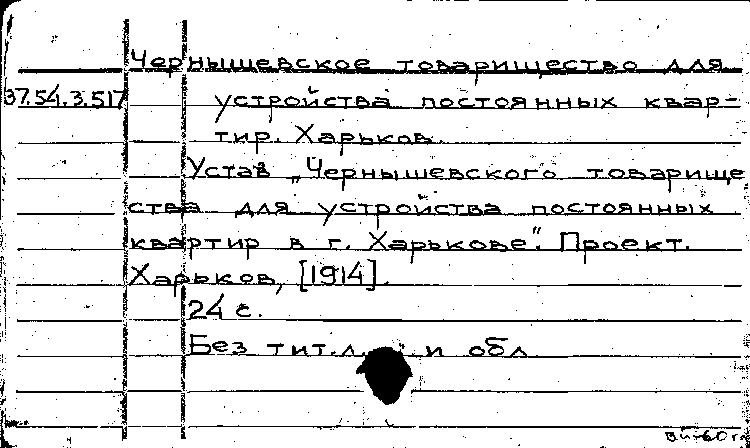 Чернышевское товарищество для
37.54.3.517 устройства постоянных квар-
тир. Харьков.
Устав „Чернышевского товарище
ства для устройства постоянных
квартир в г. Харькове". Проект.
Харьков, [1914].
24 с.
Без тит. л. и обл